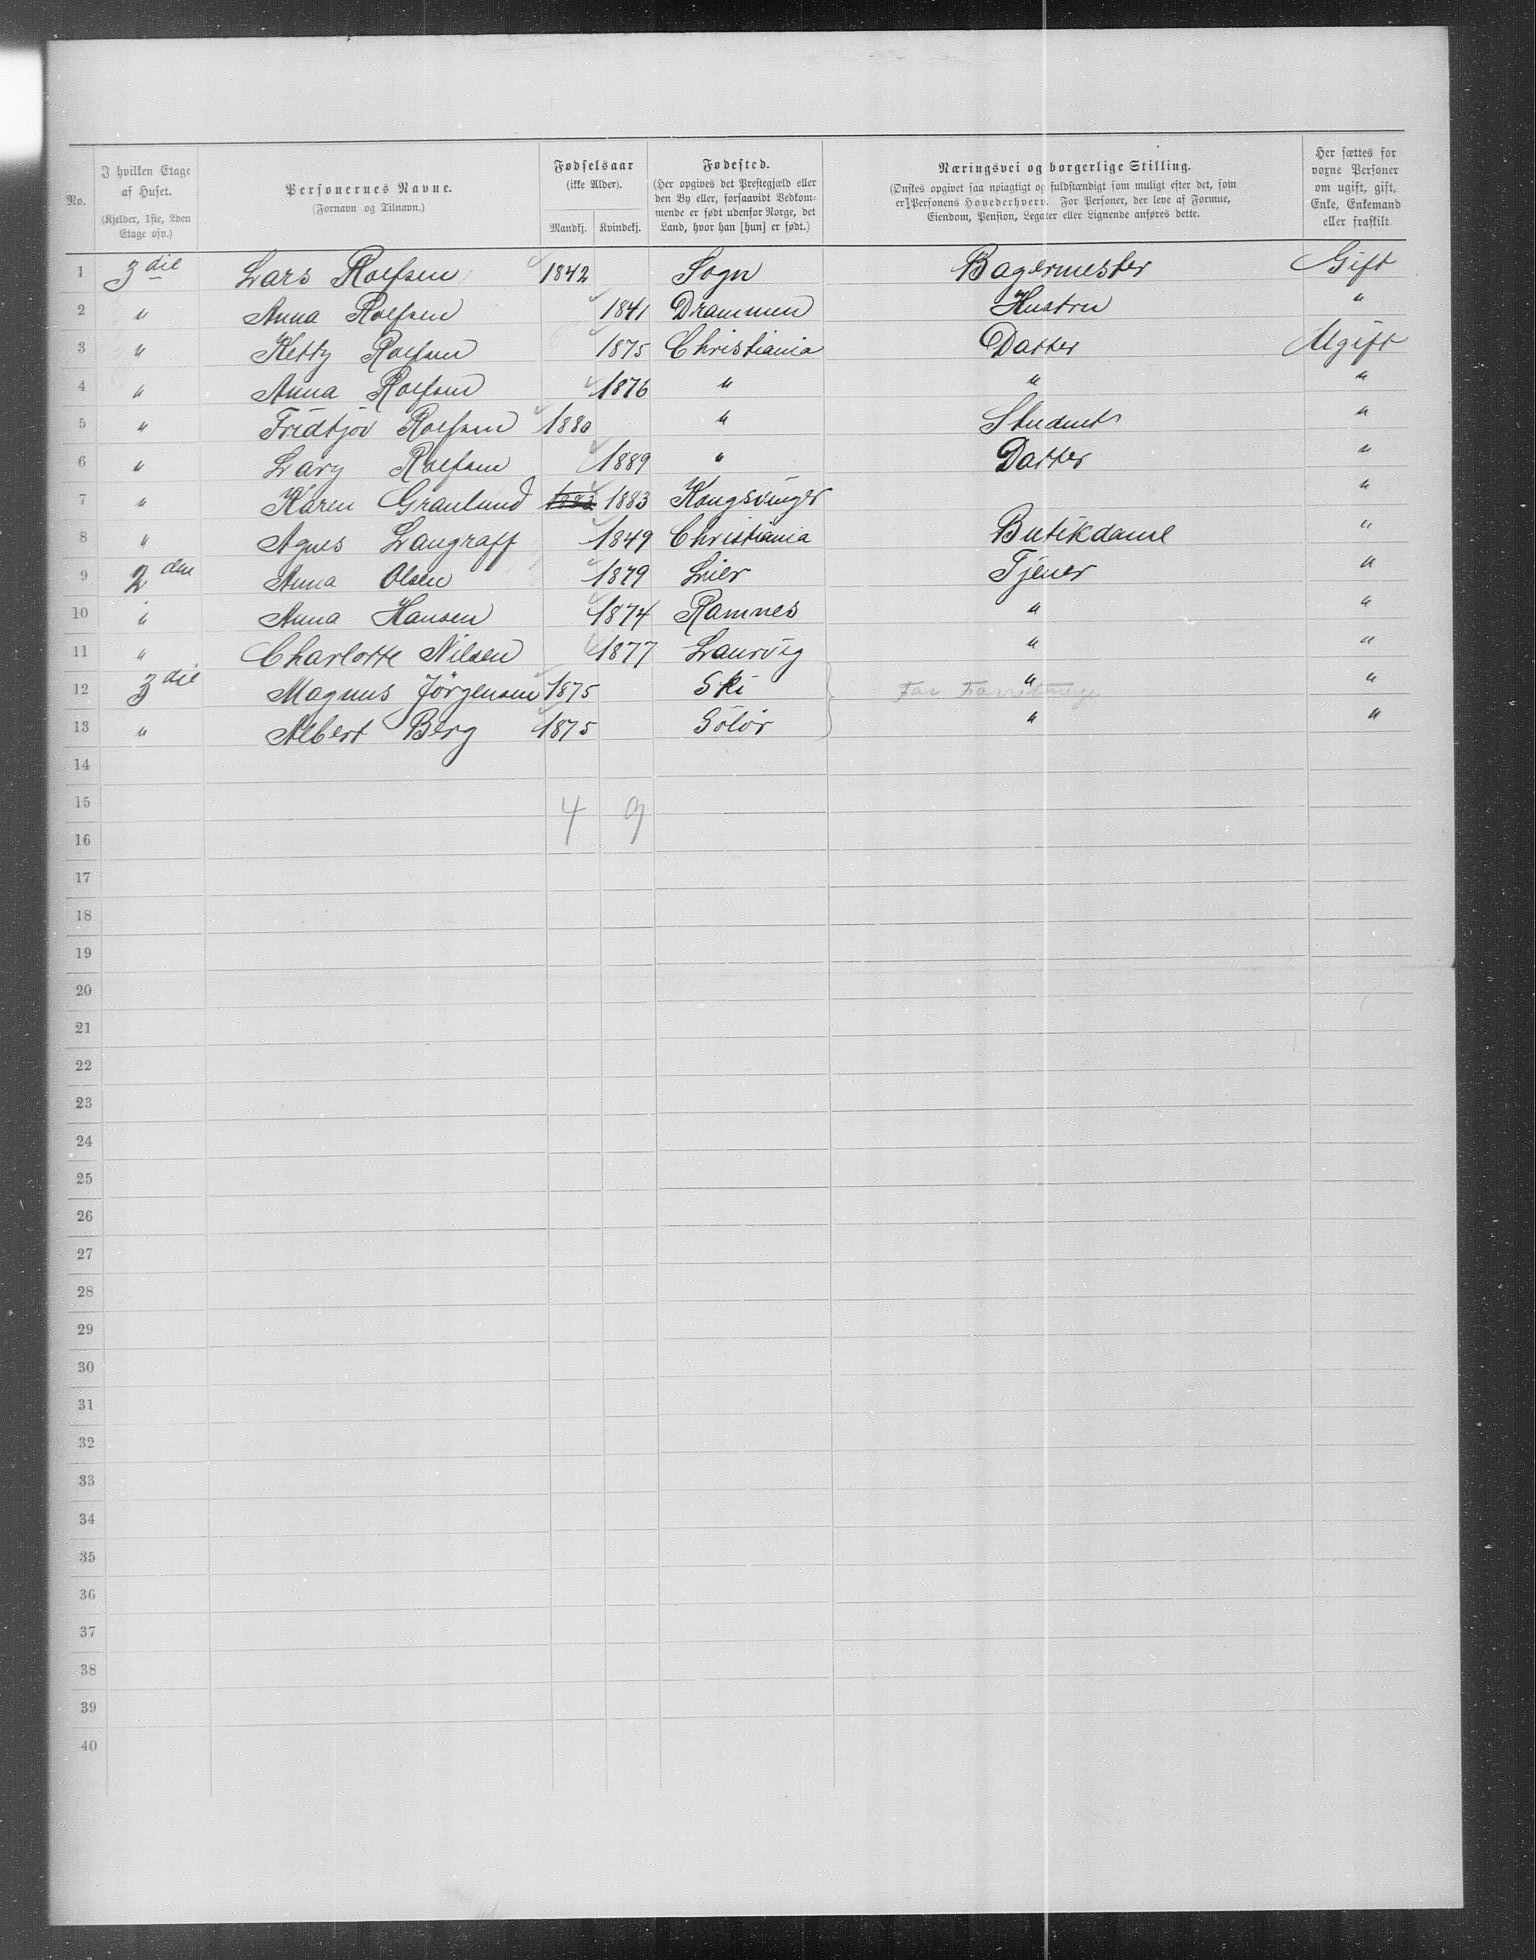 No.
I hvilken Etage af Huset.
(Kjelder, 1ste, 2den Etage osv.)
Personernes Navne.
(Fornavn og Tilnavn.)
Fødselsaar
(ikke Alder).
Mandkj. Kvindekj.
Fødested.
(Her opgives det Prestegjæld eller den By eller, forsaavidt Vedkommende er født udenfor Norge, det Land, hvor han [hun] er født.)
Næringsvei og borgerlige Stilling.
(Ønskes opgivet saa nøiagtigt og fuldstændigt som muligt efter det, som er Personens Hovederhverv. For Personer, der leve af Formue, Eiendom, Pension, Legater eller Lignende anføres dette.
Her sættes for voxne Personer om ugift, gift, Enke, Enkemand eller fraskilt.
1 3die Lars Rolfsen 1842 Sogn Bagermester Gift
2 " Anna Rolfsen 1841 Drammen Hustru "
3 " Ketty Rolfsen 1875 Christiania Datter Ugift
4 " Anna Rolfsen 1876 " " "
5 " Fridtjov Rolfsen 1880 " Student "
6 " Lary Rolfsen 1889 " Datter "
7 " Karen Granlund 1883 1883 Kongsvinger "
8 " Agnes Langraff 1849 Christiania Butikdame "
9 2den Anna Olsen 1879 Lier Tjener "
10 " Anna Hansen 1874 Ramnes " "
11 " Charlotte Nilsen 1877 Laurvig " "
12 3die Magnus Jörgensen 1875 Ski " "
13 " Albert Berg 1875 Solör " "
14
15 4 9
16
17
18
19
20
21
22
23
24
25
26
27
28
29
30
31
32
33
34
35
36
37
38
39
40